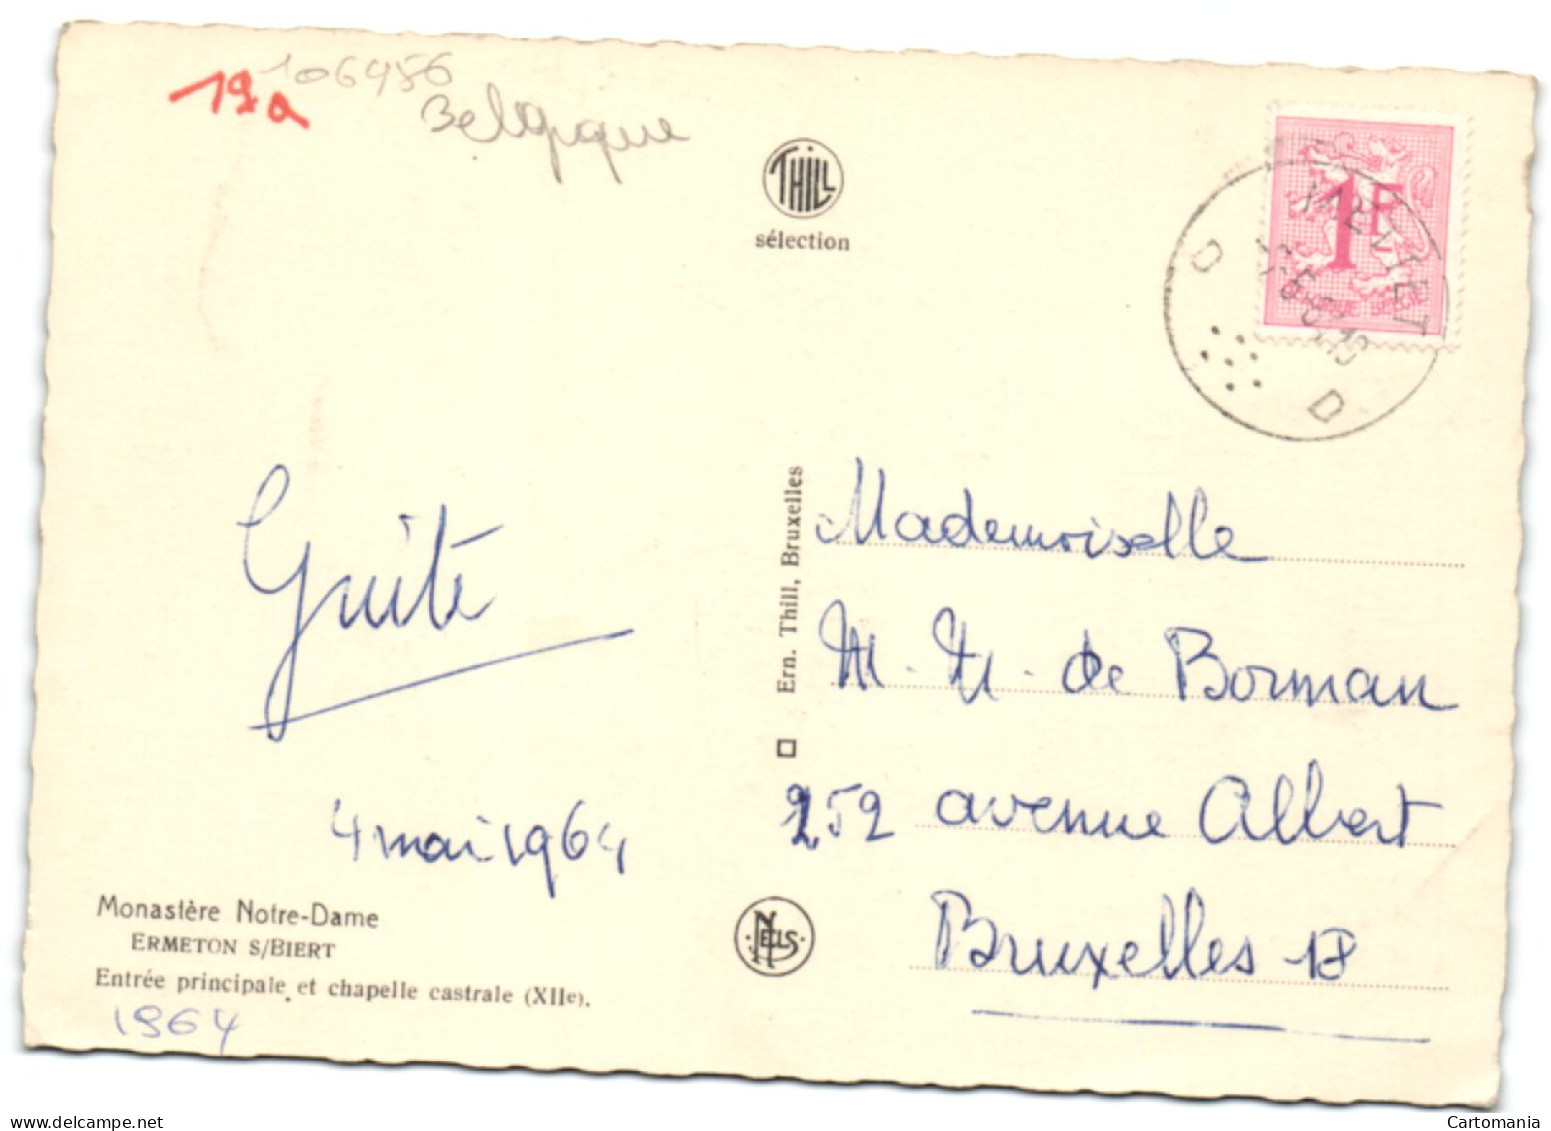 106456
19a
Belgique
THILL
sélection
1F
BELGIQUE BELGIE
D
D
Guite
4 mai 1964
Monastère Notre-Dame
ERMETON S/BIERT
Entrée principale et chapelle castrale (XIIe).
1964
Ern. Thill, Bruxelles
NELS
Mademoiselle
M. M. de Borman
252 avenue Albert
Bruxelles 18
delcampe.net
Cartomania